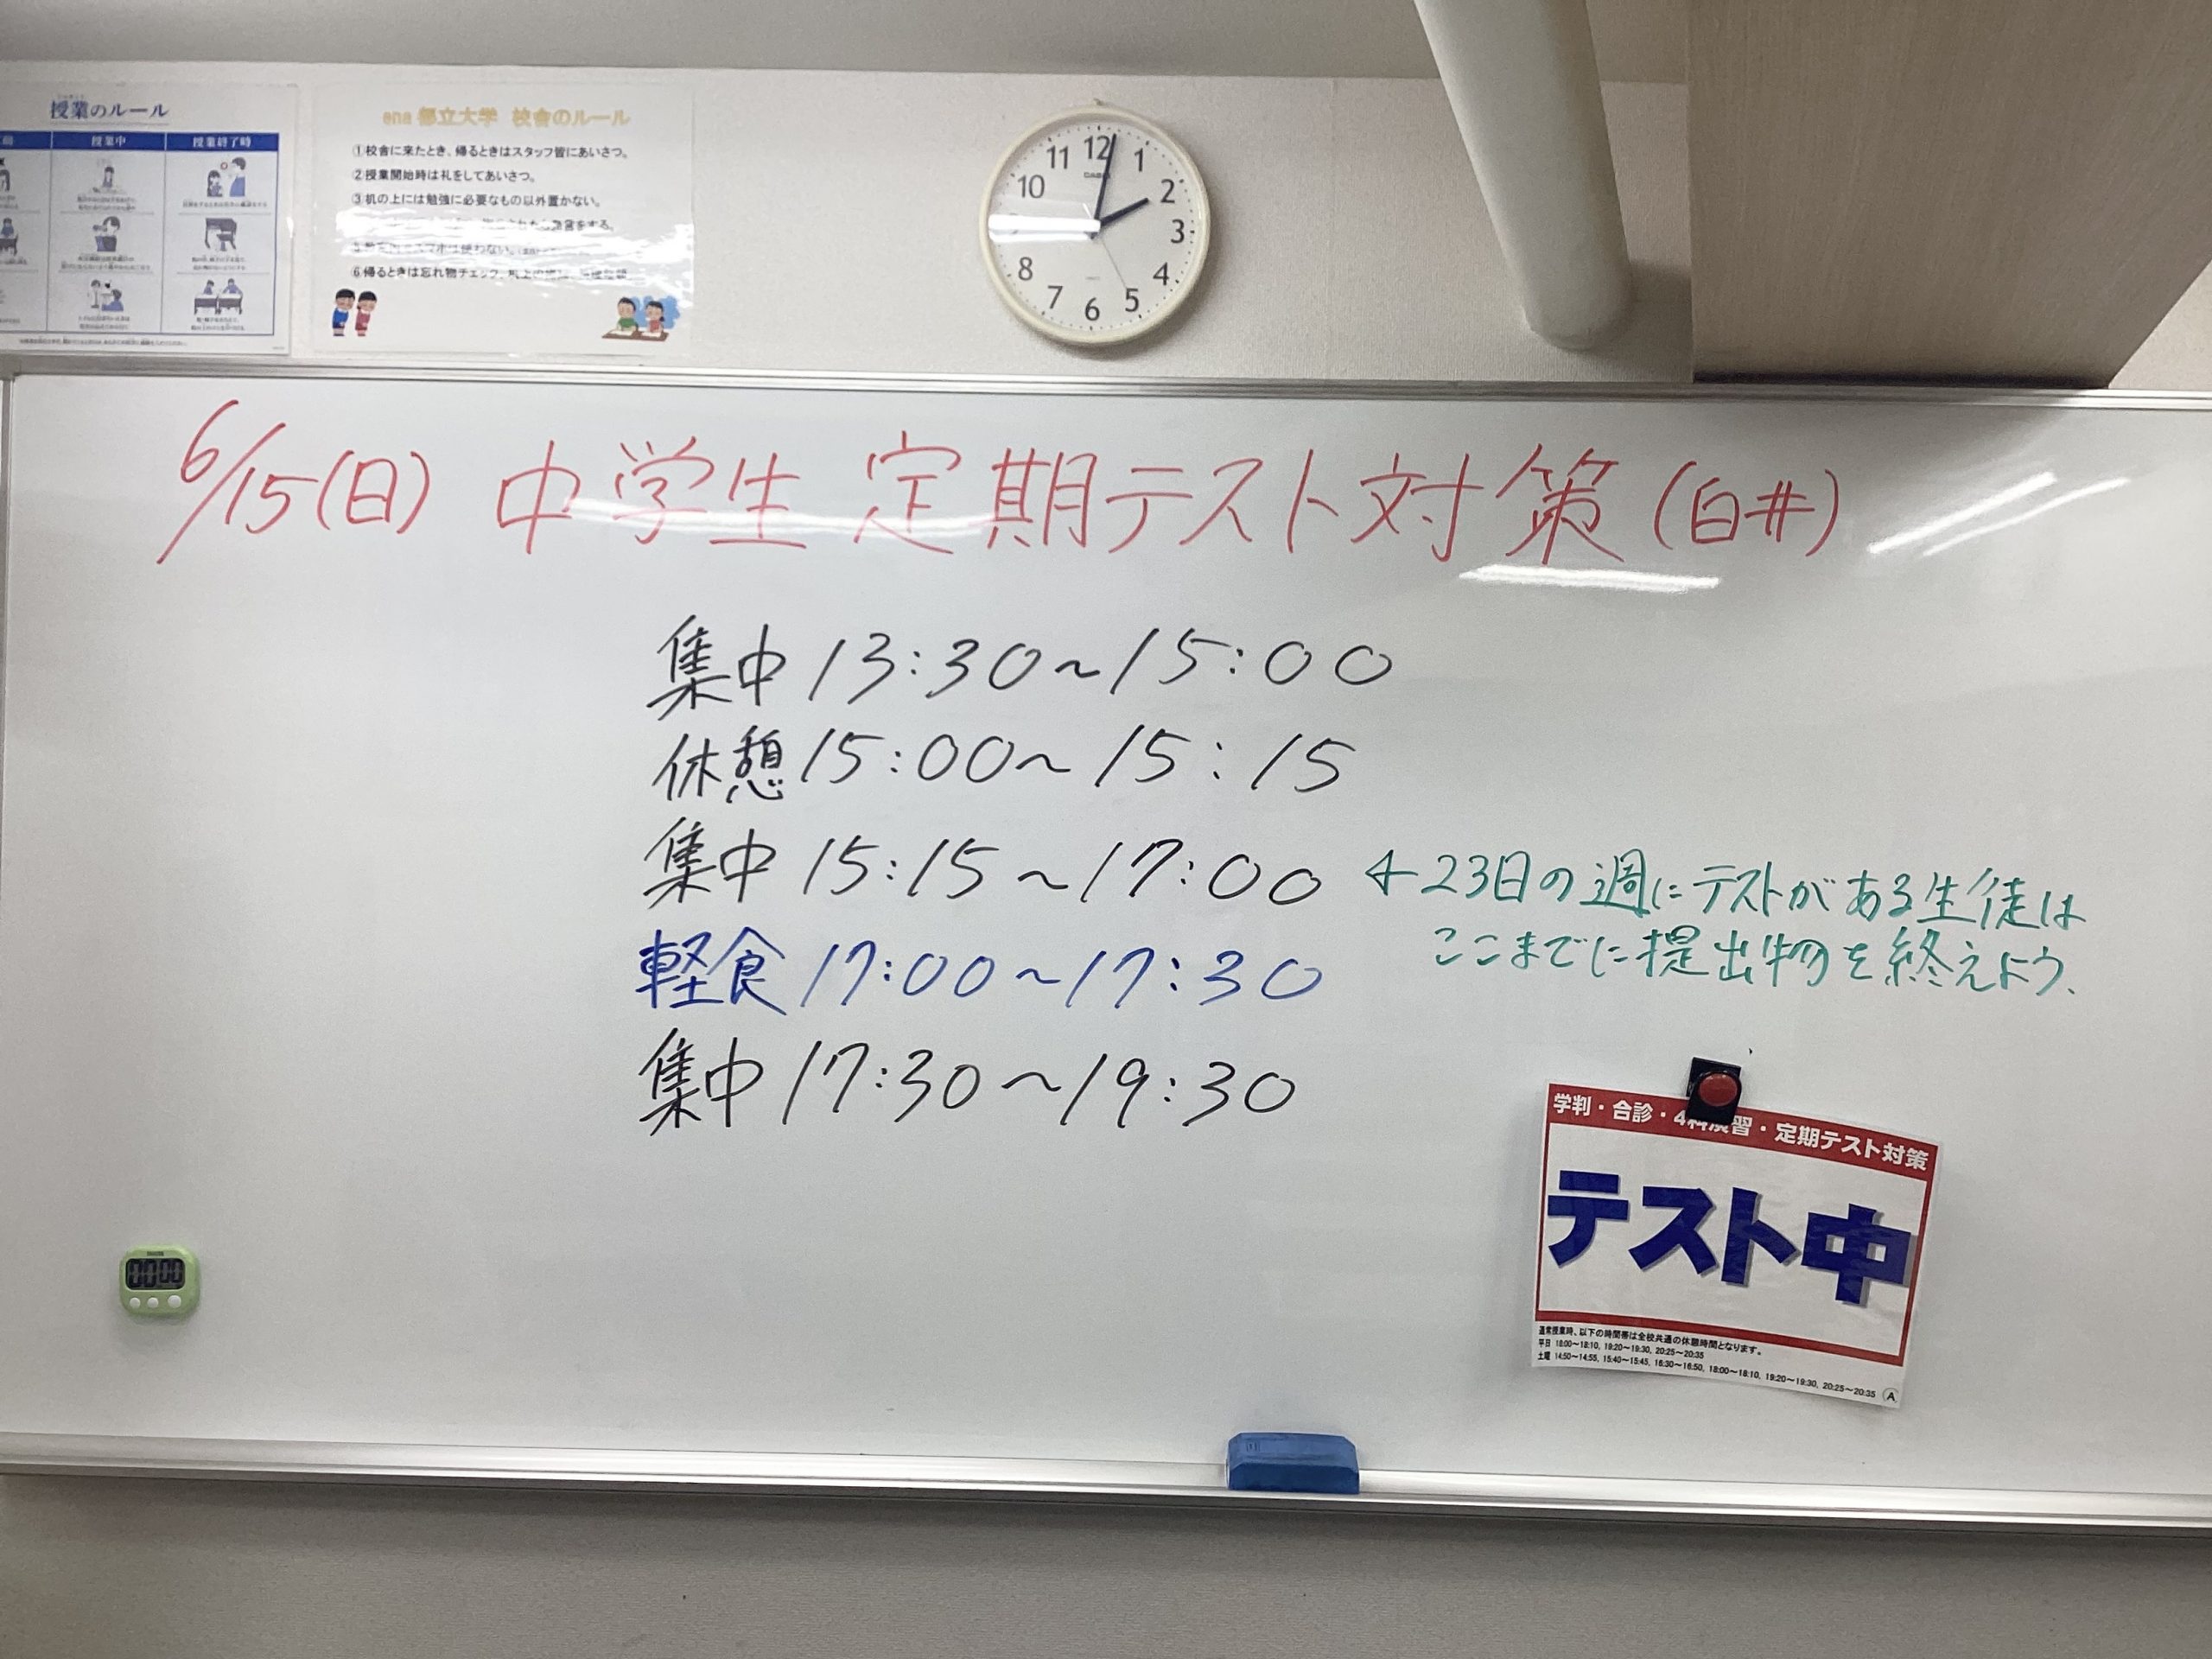 授業のルール
授業中
授業終了時
ena 都立大学 校舎のルール
①校舎に来たとき、帰るときはスタッフ皆にあいさつ。
②授業開始時は礼をしてあいさつ。
③机の上には勉強に必要なもの以外置かない。
発言をする。
スマホは使わない。
⑥帰るときは忘れ物チェック、机上の
11 12 1
10 2
3
8 4
7 6 5
CASIO
6/15(日) 中学生 定期テスト対策(白井)
集中 13:30~15:00
休憩 15:00~15:15
集中 15:15~17:00 ←23日の週にテストがある生徒は
ここまでに提出物を終えよう.
軽食 17:00~17:30
集中 17:30~19:30
学判・合診・4科演習・定期テスト対策
テスト中
通常授業時、以下の時間帯は全校共通の休憩時間となります。
平日 18:00~18:10, 19:20~19:30, 20:25~20:35
土曜 14:50~14:55, 15:40~15:45, 16:30~16:50, 18:00~18:10, 19:20~19:30, 20:25~20:35 Ⓐ
00 00